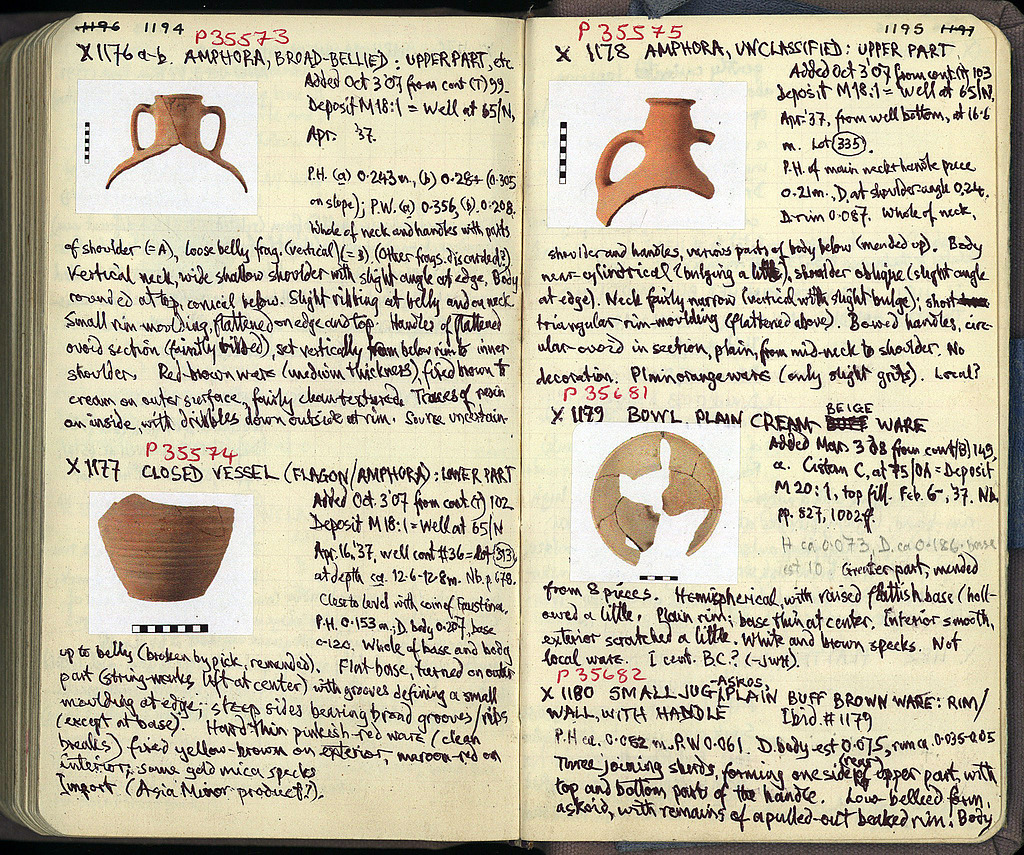 1196 1194
P35573
X 1176 a-b. AMPHORA, BROAD-BELLIED: UPPER PART, etc
Added Oct 3 '07 from cont (T) 99.
Deposit M 18:1 = Well at 65/N,
Apr. '37.
P.H. (a) 0.243 m., (b) 0.284 (0.305
on slope); P.W. (a) 0.356, (b) 0.208.
Whole of neck and handles with parts
of shoulder (=A), loose belly frag. (vertical) (=B) (Other frags. discarded?)
Vertical neck, wide shallow shoulder with slight angle at edge. Body
rounded at top, conical below. Slight ribbing at belly and on neck.
Small rim moulding, flattened on edge and top. Handles of flattened
ovoid section (faintly ribbed), set vertically from below rim to inner
shoulder. Red-brown ware (medium thickness), fired brown to
cream on outer surface, fairly clean textured. Traces of resin
on inside, with dribbles down outside at rim. Source uncertain
P 35574
X 1177 CLOSED VESSEL (FLAGON/AMPHORA): LOWER PART
Added Oct. 3 '07 from cont (T) 102
Deposit M 18:1 = Well at 65/N
Apr. 16, '37, well cont #36 = lot (313),
at depth ca. 12.6-12.8 m. Nb. p. 678.
Close to level with coin of Faustina.
P.H. 0.153 m., D. body 0.207, base
c. 120. Whole of base and body
up to belly (broken by pick, remended). Flat base, turned on outer
part (string-marks left at center) with grooves defining a small
moulding at edge; steep sides bearing broad grooves/ribs
(except at base). Hard thin pinkish-red ware (clean
breaks) fired yellow-brown on exterior, maroon-red on
interior; some gold mica specks
Import (Asia Minor product?).
P 35575
1195 1197
X 1178 AMPHORA, UNCLASSIFIED: UPPER PART
Added Oct 3 '07 from cont (T) 103
Deposit M 18:1 = Well at 65/N,
Apr. '37, from well bottom, at 16.6
m. Lot (335).
P.H. of main neck + handle piece
0.21 m., D. at shoulder-angle 0.24.
D. rim 0.087. Whole of neck,
shoulder and handles, various parts of body below (mended up). Body
near-cylindrical (bulging a little), shoulder oblique (slight angle
at edge). Neck fairly narrow (vertical with slight bulge); short
triangular rim-moulding (flattened above). Bowed handles, circ-
ular-ovoid in section, plain, from mid-neck to shoulder. No
decoration. Plain orange ware (only slight grits). Local?
P 35681
X 1179 BOWL, PLAIN CREAM BEIGE WARE
Added Mar. 3 '08 from cont (B) 149,
a. Cistern C, at 75/ΟΑ = Deposit
M 20:1, top fill. Feb. 6, '37. Nb.
pp. 827, 1002 ff.
H ca 0.073, D. ca 0.186. base
est 10. Greater part, mended
from 8 pieces. Hemispherical, with raised flattish base (holl-
owed a little. Plain rim; base thin at center. Interior smooth,
exterior scratched a little. White and brown specks. Not
local ware. I cent. B.C.? (-JWH).
P 35682
X 1180 SMALL JUG-ASKOS, PLAIN BUFF BROWN WARE: RIM/
WALL, WITH HANDLE Ibid. #1179
P.H ca. 0.052 m. P.W 0.061. D. body est 0.075, rim ca. 0.035-0.05
Three joining sherds, forming one side (rear) of upper part, with
top and bottom parts of the handle. Low-bellied form,
askoid, with remains of a pulled-out beaked rim. Body